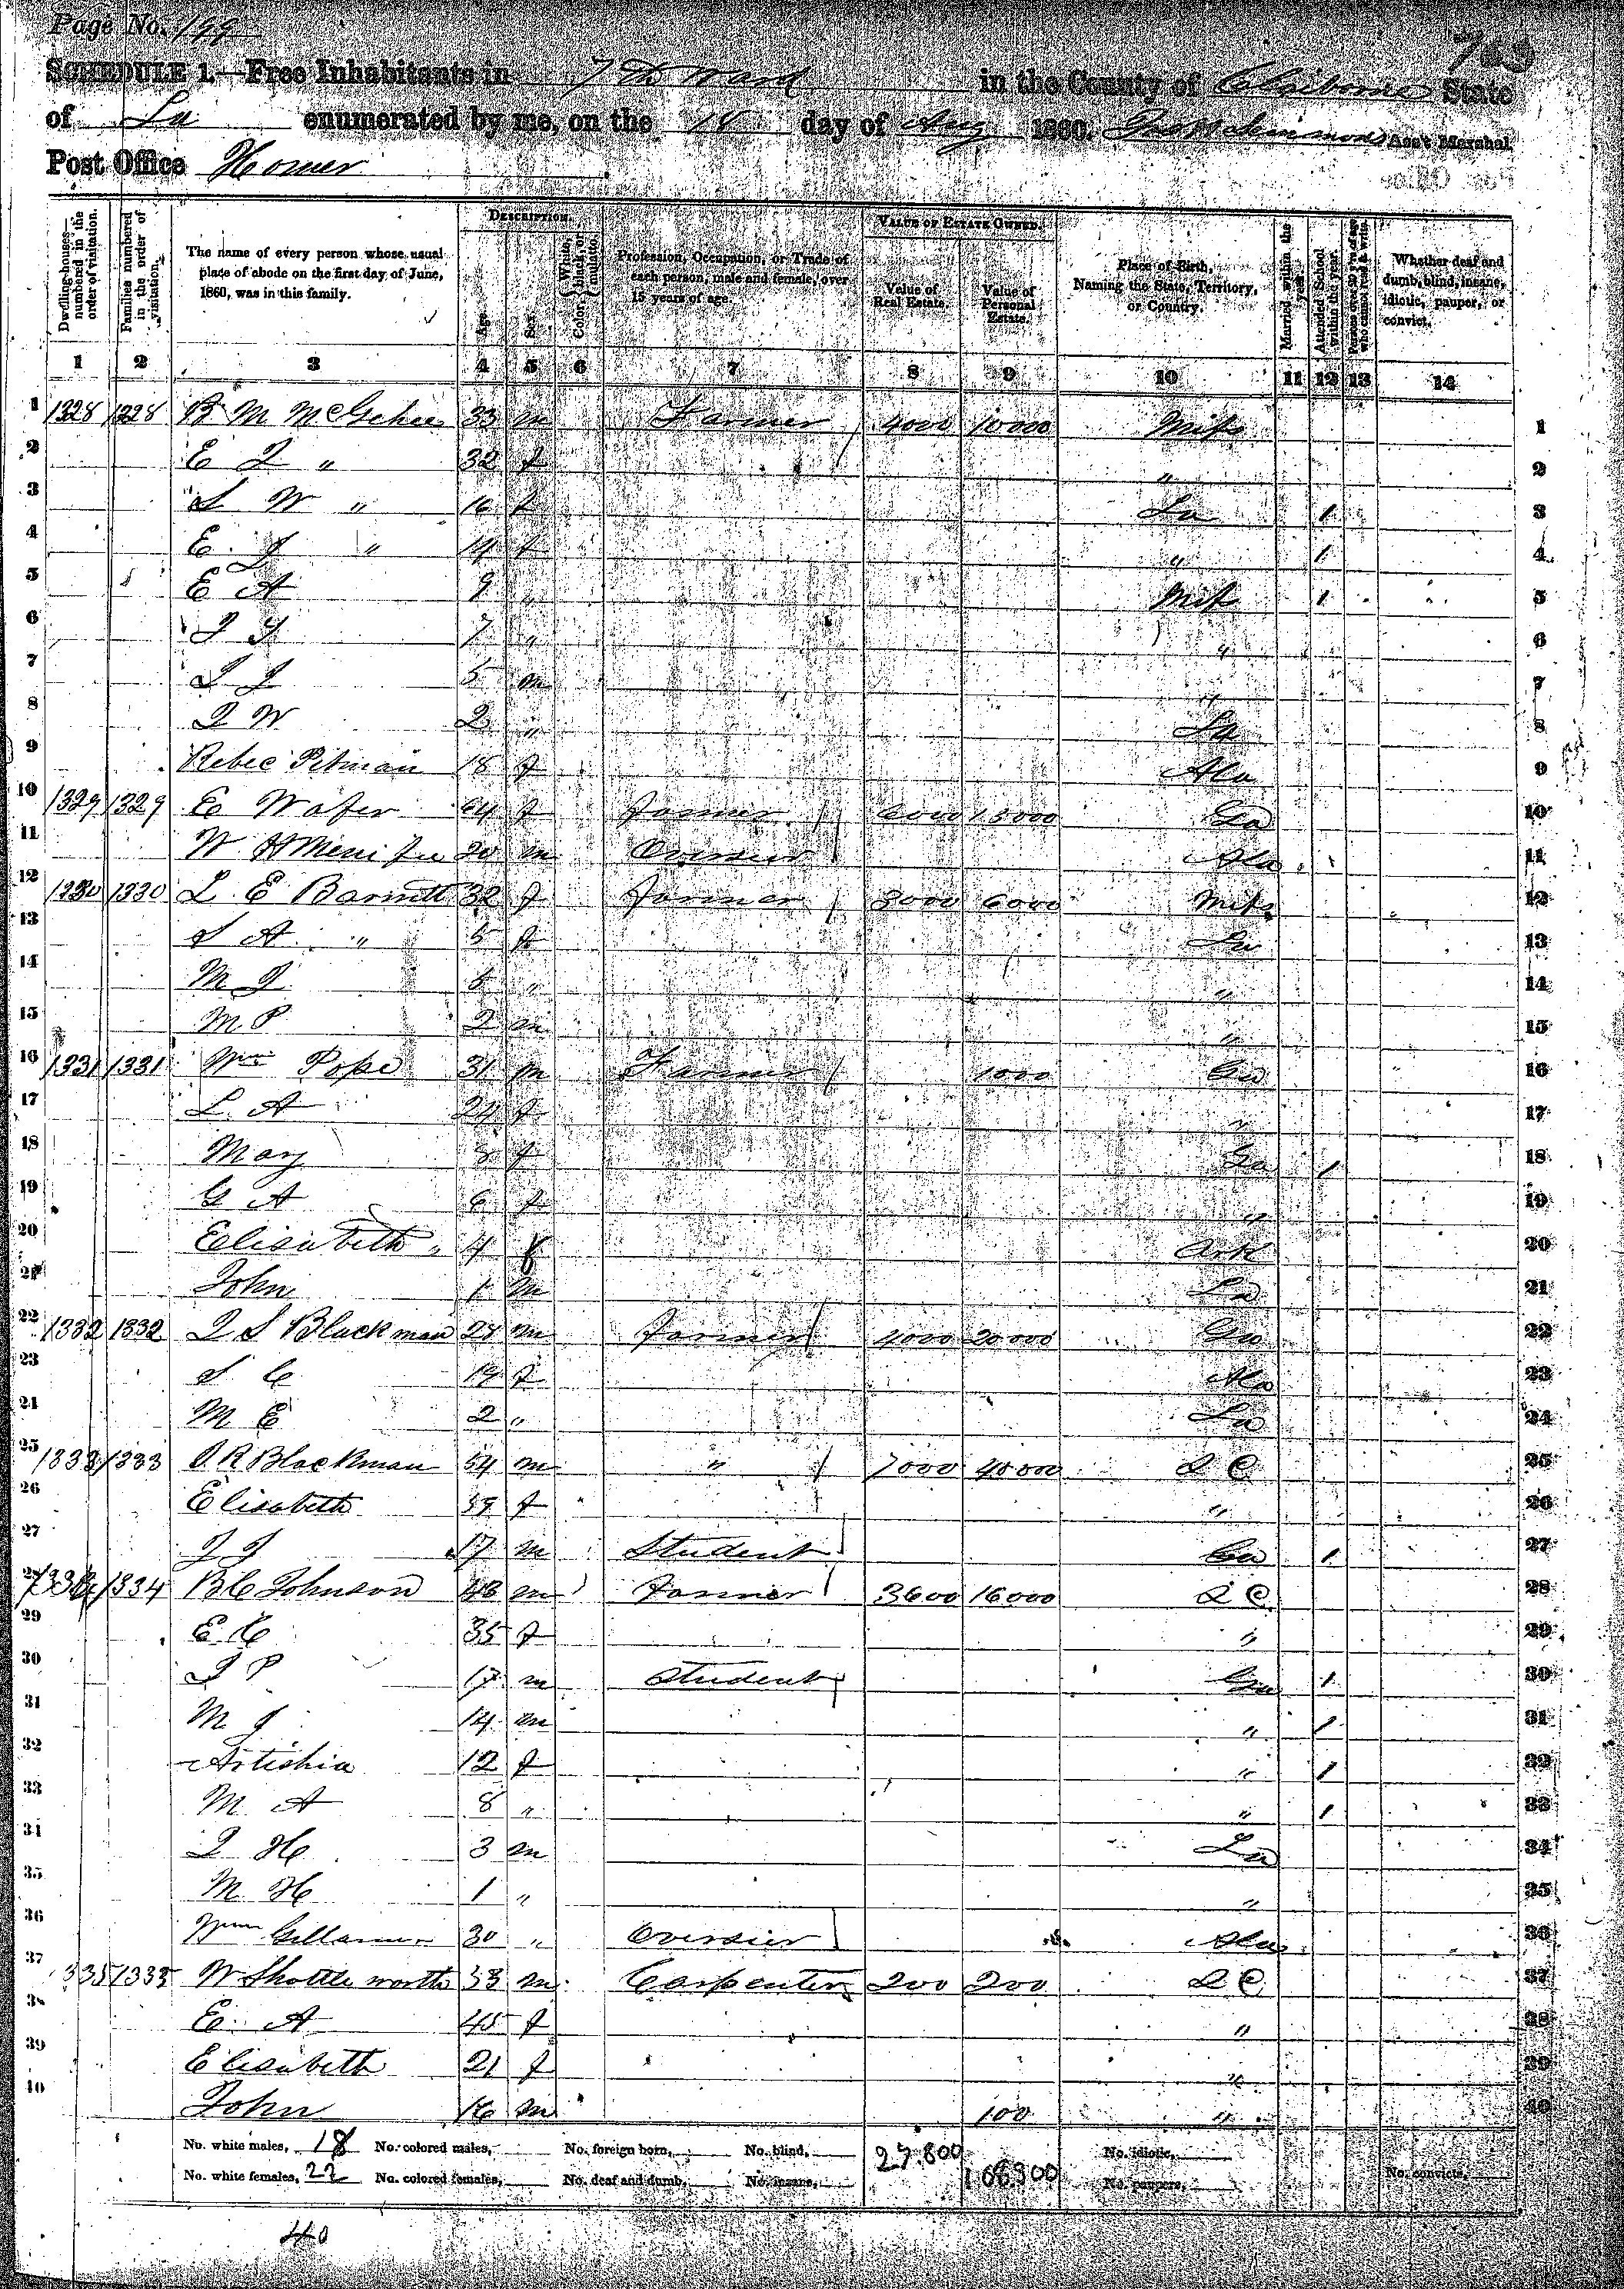 Page No. 199
SCHEDULE 1.—Free Inhabitants in 7th Ward in the County of Claiborne State
of La enumerated by me, on the 18 day of Aug 1860. Ass't Marshal.
Post Office Homer
DESCRIPTION. VALUE OF ESTATE OWNED.
Dwelling-houses—numbered in the order of visitation.
Families numbered in the order of visitation.
The name of every person whose usual place of abode on the first day of June, 1860, was in this family.
Age.
Sex.
Color, White, black, or mulatto.
Profession, Occupation, or Trade of each person, male and female, over 15 years of age.
Value of Real Estate.
Value of Personal Estate.
Place of Birth, Naming the State, Territory, or Country.
Married within the year.
Attended School within the year.
Persons over 20 y'rs of age who cannot read & write.
Whether deaf and dumb, blind, insane, idiotic, pauper, or convict.
1 2 3 4 5 6 7 8 9 10 11 12 13 14
1 1328 1328 B M McGehee 33 m Farmer 4000 10000 Miss 1
2 E J " 32 f " 2
3 S W " 16 f La 1 3
4 E J " 14 f " 1 4
5 E A 9 " Miss 1 5
6 7 " " 6
7 5 m " 7
8 J W 2 " La 8
9 Rebec Pitman 18 f Ala 9
10 1329 1329 E Wafer 64 f Farmer 6000 15000 Ga 10
11 W H 20 m Oversier Ala 11
12 1330 1330 L E Barnett 32 f Farmer 3000 6000 Miss 12
13 S A " 5 f La 13
14 M J " " 14
15 M P 2 m " 15
16 1331 1331 Wm Pope 31 m Farmer 1000 Ga 16
17 L. A 24 f " 17
18 Mary 8 f Ga 1 18
19 G A 6 f " 19
20 Elisabeth " 4 f Ark 20
21 John 1 m La 21
22 1332 1332 J S Blackman 28 m Farmer 4000 20000 Geo 22
23 S C 19 f Ala 23
24 M E 2 " La 24
25 1333 1333 J R Blackman 54 m " 7000 40000 S C 25
26 Elisabeth 39 f " 26
27 J J 17 m Student Ga 1 27
28 1334 1334 B C Johnson 48 m Farmer 3600 16000 S C 28
29 E C 35 f " 29
30 J P 17 m Student Ga 1 30
31 M J 14 m " 1 31
32 Artishia 12 f " 1 32
33 M A 8 " " 1 33
34 J H 3 m La 34
35 M H 1 " " 35
36 Wm 30 " Oversier Ala 36
37 1335 1335 W Shottleworth 53 m Carpenter 200 200 S C 37
38 E. A 45 f " 38
39 Elisabeth 21 f " 39
40 John 16 m 100 " 40
No. white males, 18 No. colored males, No. foreign born, No. blind, 27.800 No. idiotic,
No. white females, 22 No. colored females, No. deaf and dumb, No. insane, 108300 No. paupers, No. convicts,
40